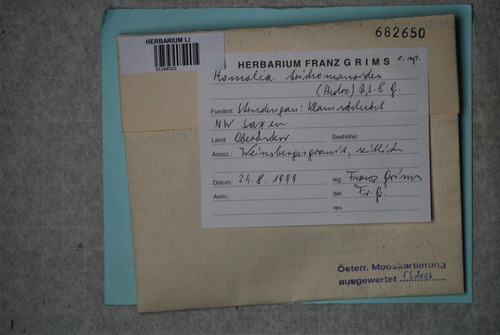 682650
HERBARIUM LI
HERBARIUM FRANZ GRIMS c. sp.
Homalia trichomanoides
(Hedw.) B.S. & G.
Fundort: Strudengau: Klamschlucht
NW Saxen
Land: Oberösterr. Seehöhe:
Assoz.: Weinsbergergranit, seitlich
Datum: 24.8.1999 leg. Franz Grims
Anm.: det. Fr. G.
rev.
Österr. Mooskartierung
ausgewertet